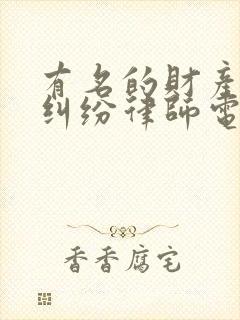 有名的財產
糾紛律師電
香香腐宅